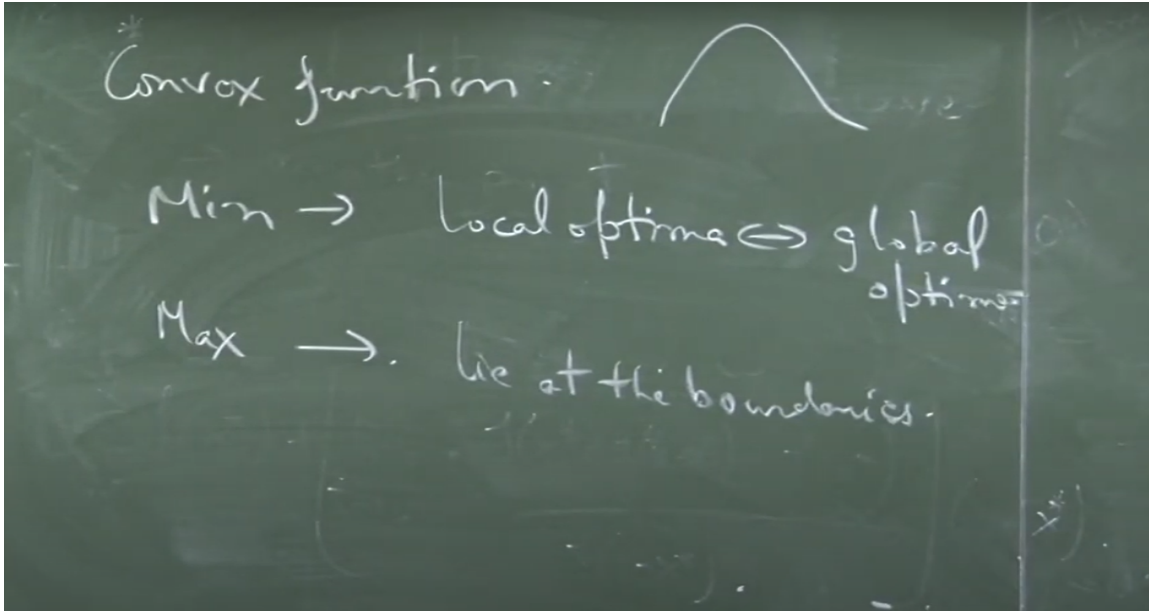 *
Convex function.
Min → Local optima ⇔ global
optima
Max → . Lie at the boundaries.
x*)